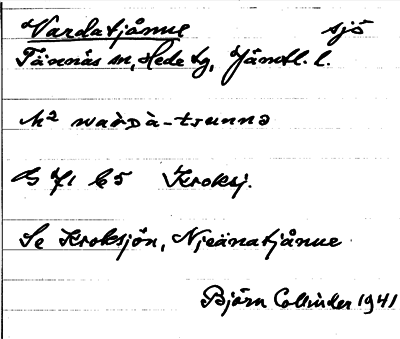 Vardatjånue sjö
Tännäs sn, Hede tg, Jämtl. l.
M² waròà-tsunnə
G 71 C5 Kroksj.
Se Kroksjön, Njeänatjånue
Björn Collinder 1941